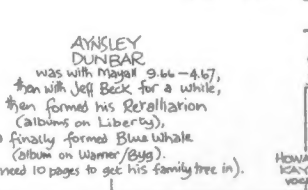 AYNSLEY
DUNBAR
was with Mayall 9.66 – 4.67,
then with Jeff Beck for a while,
then formed his Retaliation
(albums on Liberty),
finally formed Blue Whale
(album on Warner/Byg).
need 10 pages to get his family tree in).